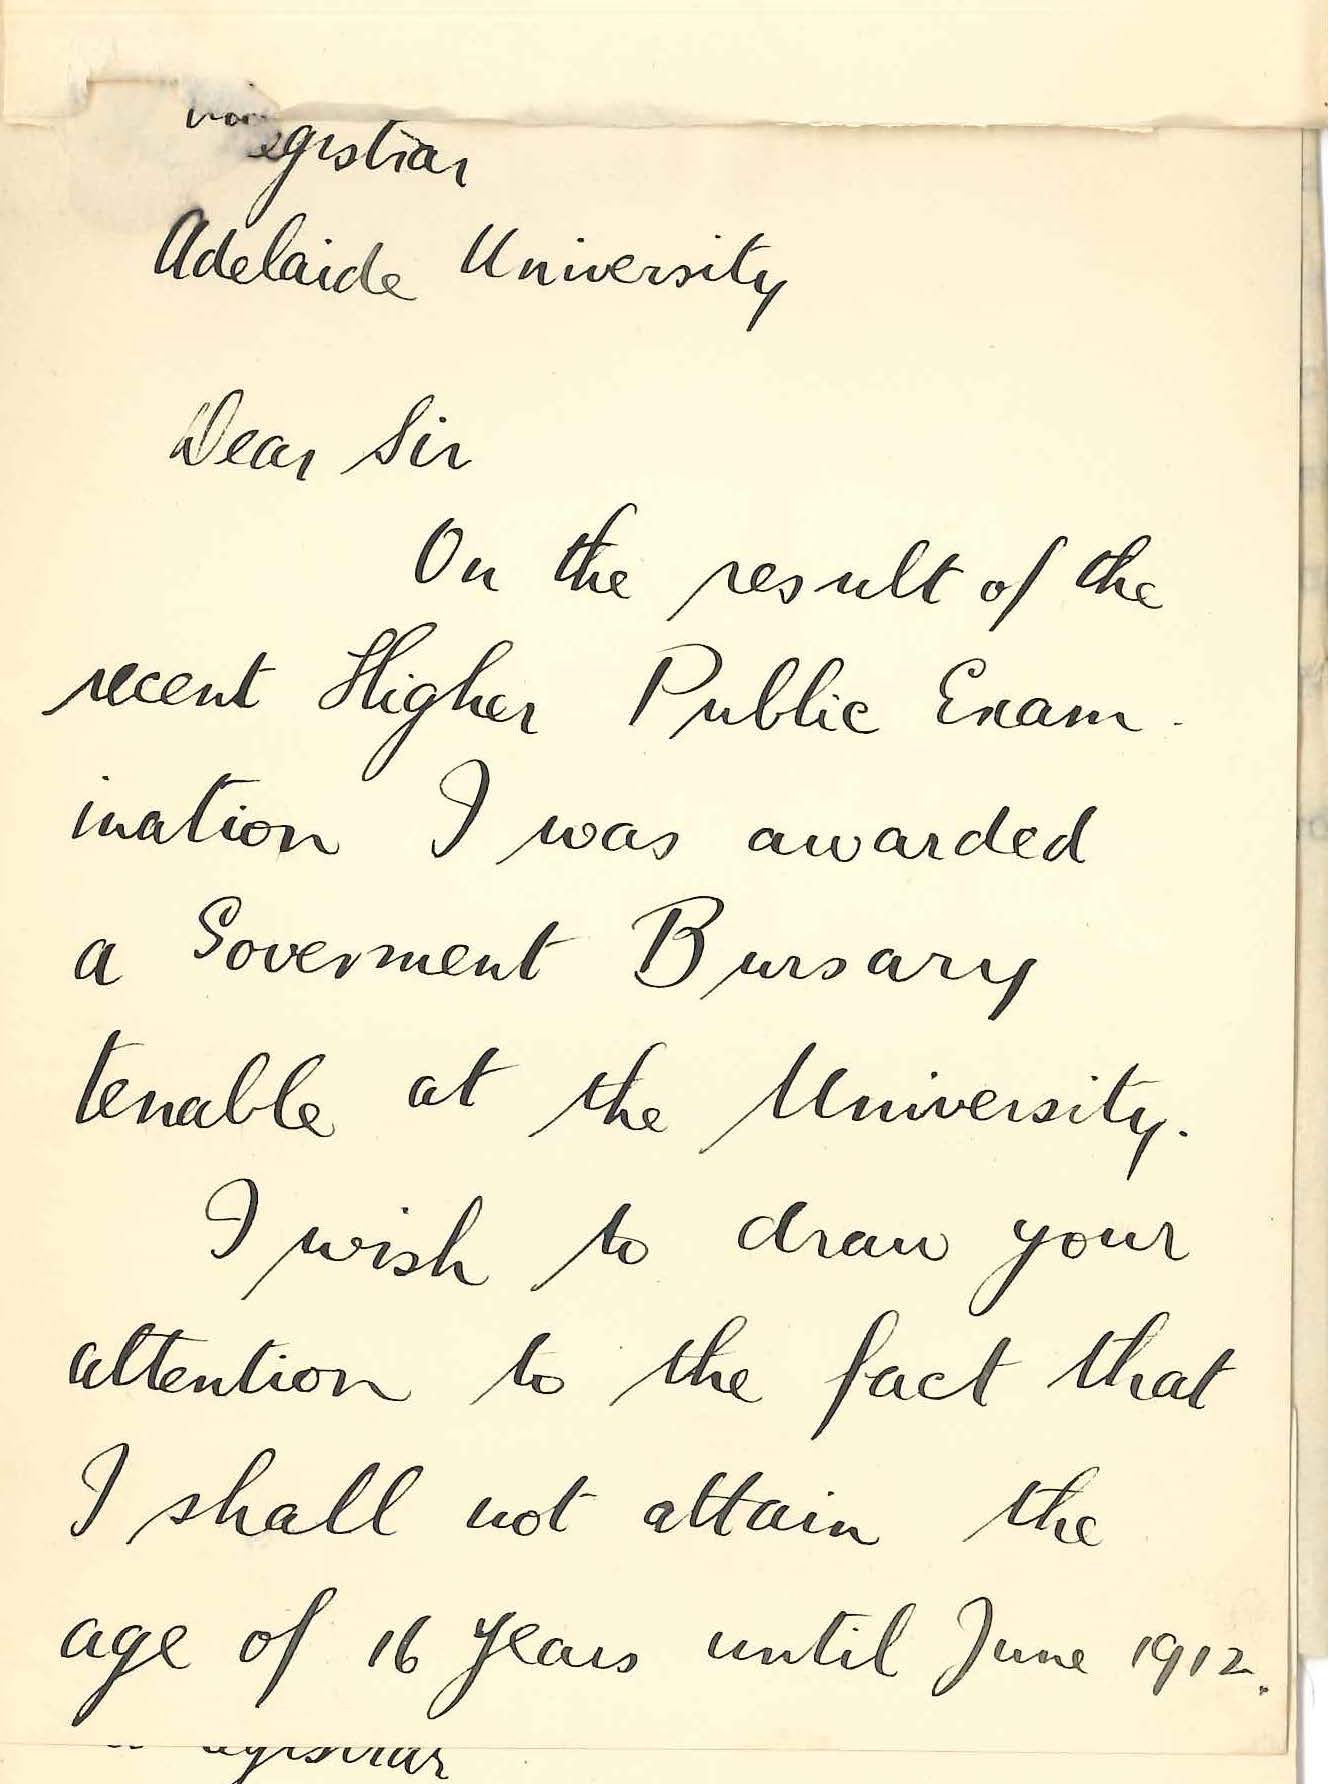 egistrar
Adelaide University
Dear Sir
On the result of the
recent Higher Public Exam-
ination I was awarded
a Goverment Bursary
tenable at the University.
I wish to draw your
attention to the fact that
I shall not attain the
age of 16 years until June 1912.
egistrar